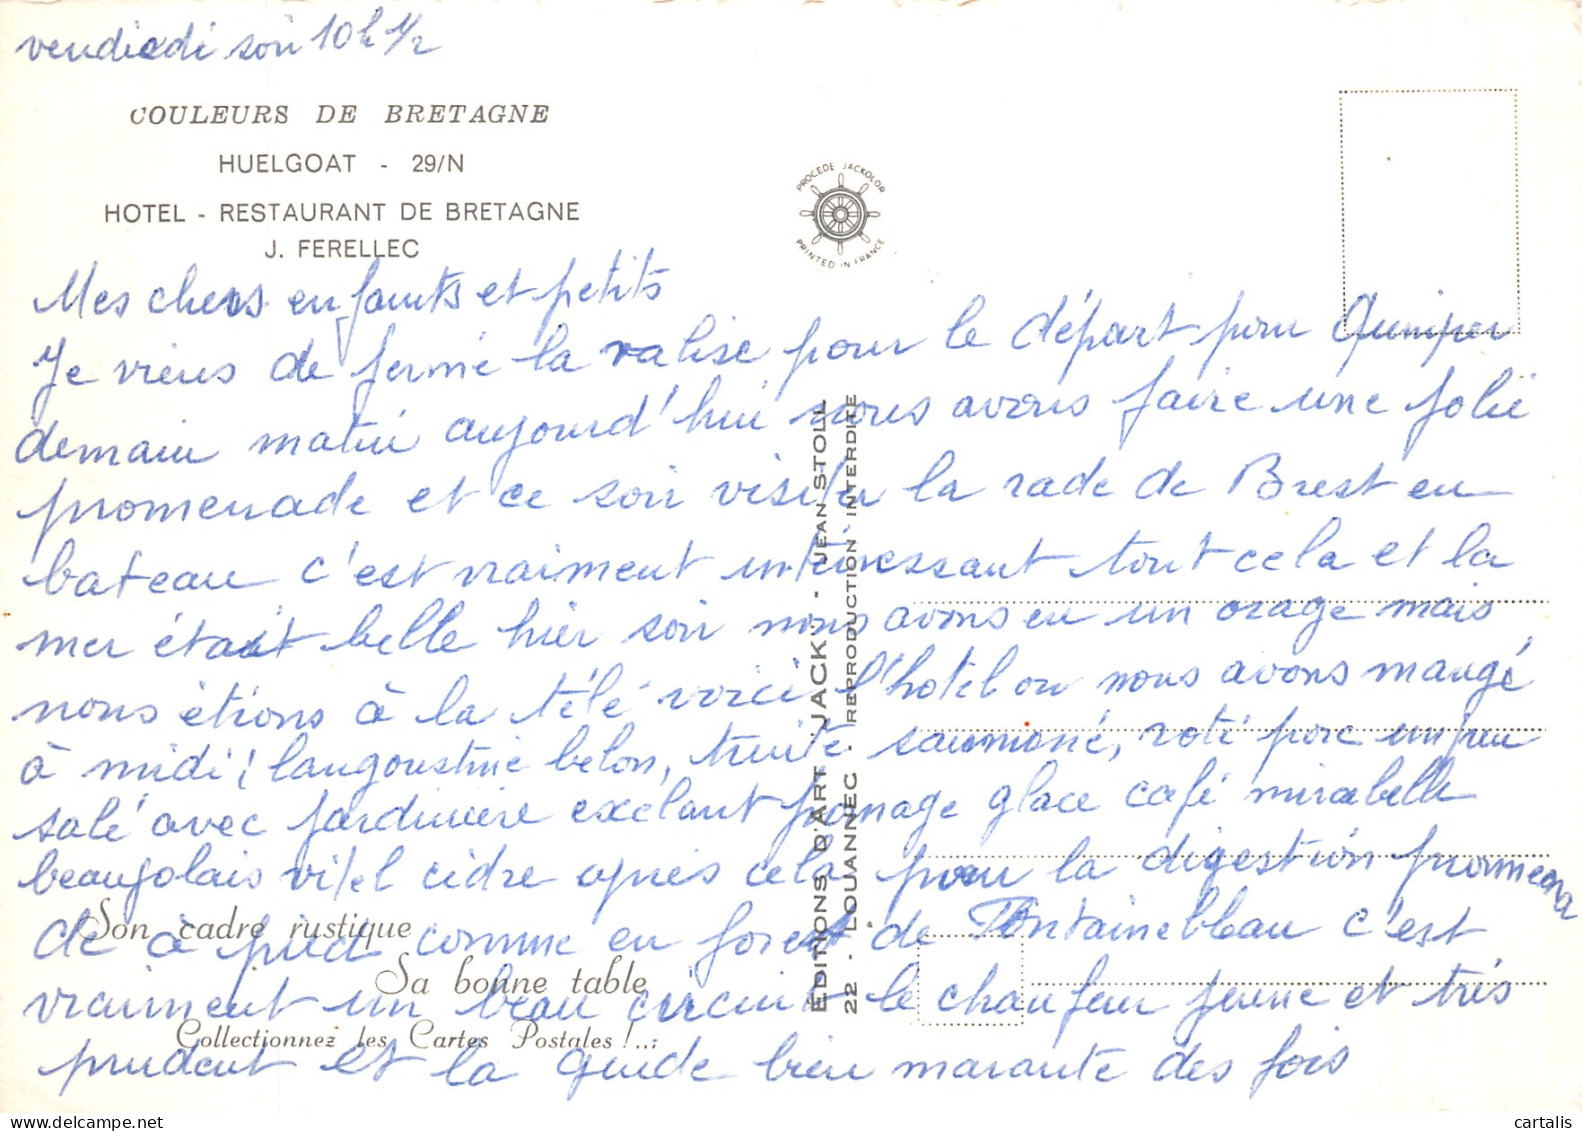 vendredi soir 10h 1/2
COULEURS DE BRETAGNE
HUELGOAT - 29/N
HOTEL - RESTAURANT DE BRETAGNE
J. FERELLEC
PROCEDE JACKOLOR
PRINTED IN FRANCE
Mes chers enfants et petits
Je viens de fermé la valise pour le départ pour Quimper
demain matin aujourd'hui nous avons faire une jolie
promenade et ce soir visiter la rade de Brest en
bateau c'est vraiment intéressant tout cela et la
mer était belle hier soir nous avons eu un orage mais
nous étions à la télé voici l'hotel ou nous avons mangé
à midi ! langoustine belon, truite saumoné, roti porc un peu
salé avec jardinière exelant fromage glace café mirabelle
beaujolais vitel cidre après cela pour la digestion promena
de à pied comme en foret de Fontainebleau c'est
vraiment un beau circuit le chaufeur jeune et très
prudent et la guide bien marante des fois
Son cadre rustique
Sa bonne table
Collectionnez les Cartes Postales !...
ÉDITIONS D'ART "JACK" - JEAN STOLL
22 - LOUANNEC - REPRODUCTION INTERDITE
cartalis